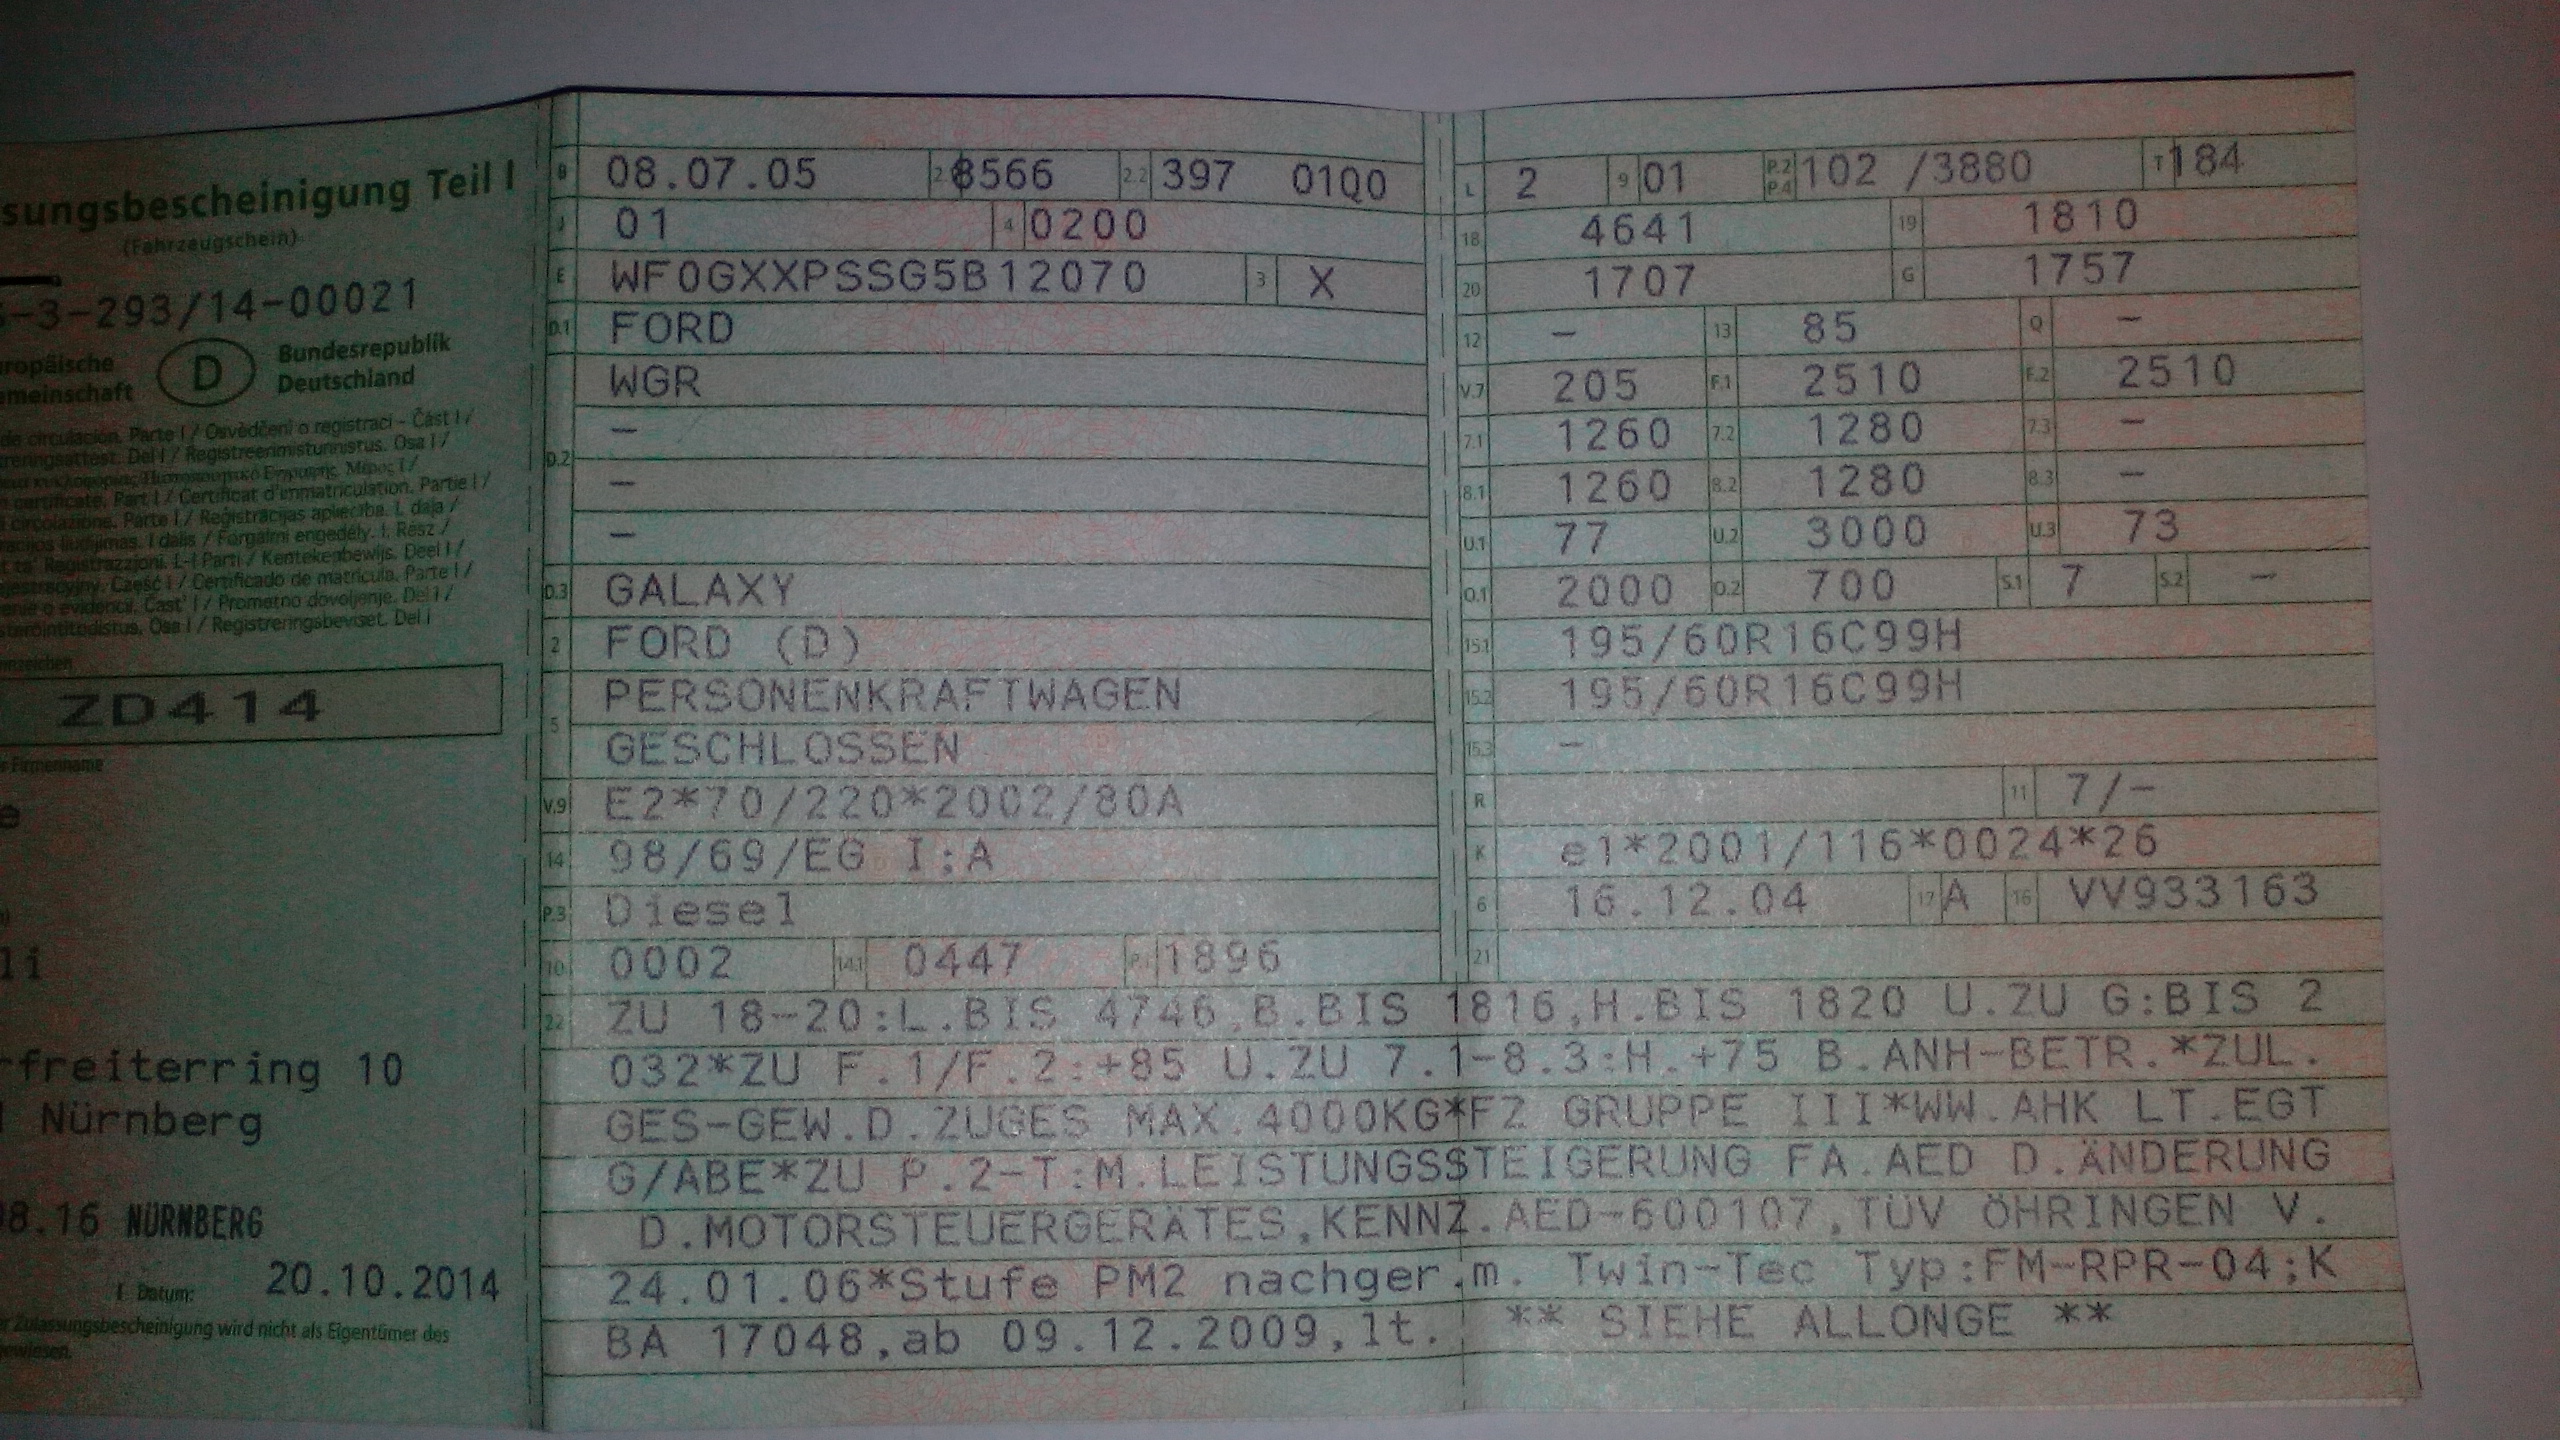 sungsbescheinigung Teil I
(Fahrzeugschein)
-3-293/14-00021
ropäische
meinschaft
D
Bundesrepublik
Deutschland
de circulación. Parte I / Osvědčení o registraci - Část I /
treringsattest. Del I / Registreerimistunnistus. Osa I /
certificate. Part I / Certificat d'immatriculation. Partie I /
circolazione. Parte I / Reģistrācijas apliecība. I. daļa /
acijos liudijimas. I dalis / Forgalmi engedély. I. Rész /
ta' Reġistrazzjoni. L-I Parti / Kentekenbewijs. Deel I /
Część I / Certificado de matrícula. Parte I /
o evidencii. Časť I / Prometno dovoljenje. Del I /
Osa I / Registreringsbeviset. Del I
ZD414
Firmenname
e
li
rfreiterring 10
Nürnberg
8.16 NÜRNBERG
Datum: 20.10.2014
Zulassungsbescheinigung wird nicht als Eigentümer des
gewiesen.
B 08.07.05 2.1 8566 2.2 397 01Q0
J 01 4 0200
E WF0GXXPSSG5B12070 3 X
D.1 FORD
WGR
–
D.2
–
–
D.3 GALAXY
2 FORD (D)
PERSONENKRAFTWAGEN
5
GESCHLOSSEN
V.9 E2*70/220*2002/80A
14 98/69/EG I;A
P.3 Diesel
10 0002 14.1 0447 P.1 1896
L 2 9 01 P.2 P.4 102 /3880 T 184
18 4641 19 1810
20 1707 G 1757
12 – 13 85 Q –
V.7 205 F.1 2510 F.2 2510
7.1 1260 7.2 1280 7.3 –
8.1 1260 8.2 1280 8.3 –
U.1 77 U.2 3000 U.3 73
O.1 2000 O.2 700 S.1 7 S.2 –
15.1 195/60R16C99H
15.2 195/60R16C99H
15.3 –
R 11 7/–
K e1*2001/116*0024*26
6 16.12.04 17 A 16 VV933163
21
22 ZU 18-20:L.BIS 4746,B.BIS 1816,H.BIS 1820 U.ZU G:BIS 2
032*ZU F.1/F.2:+85 U.ZU 7.1-8.3:H.+75 B.ANH-BETR.*ZUL.
GES-GEW.D.ZUGES MAX.4000KG*FZ GRUPPE III*WW.AHK LT.EGT
G/ABE*ZU P.2-T:M.LEISTUNGSSTEIGERUNG FA.AED D.ÄNDERUNG
D.MOTORSTEUERGERÄTES,KENNZ.AED-600107,TÜV ÖHRINGEN V.
24.01.06*Stufe PM2 nachger.m. Twin-Tec Typ:FM-RPR-04;K
BA 17048,ab 09.12.2009,lt. ** SIEHE ALLONGE **